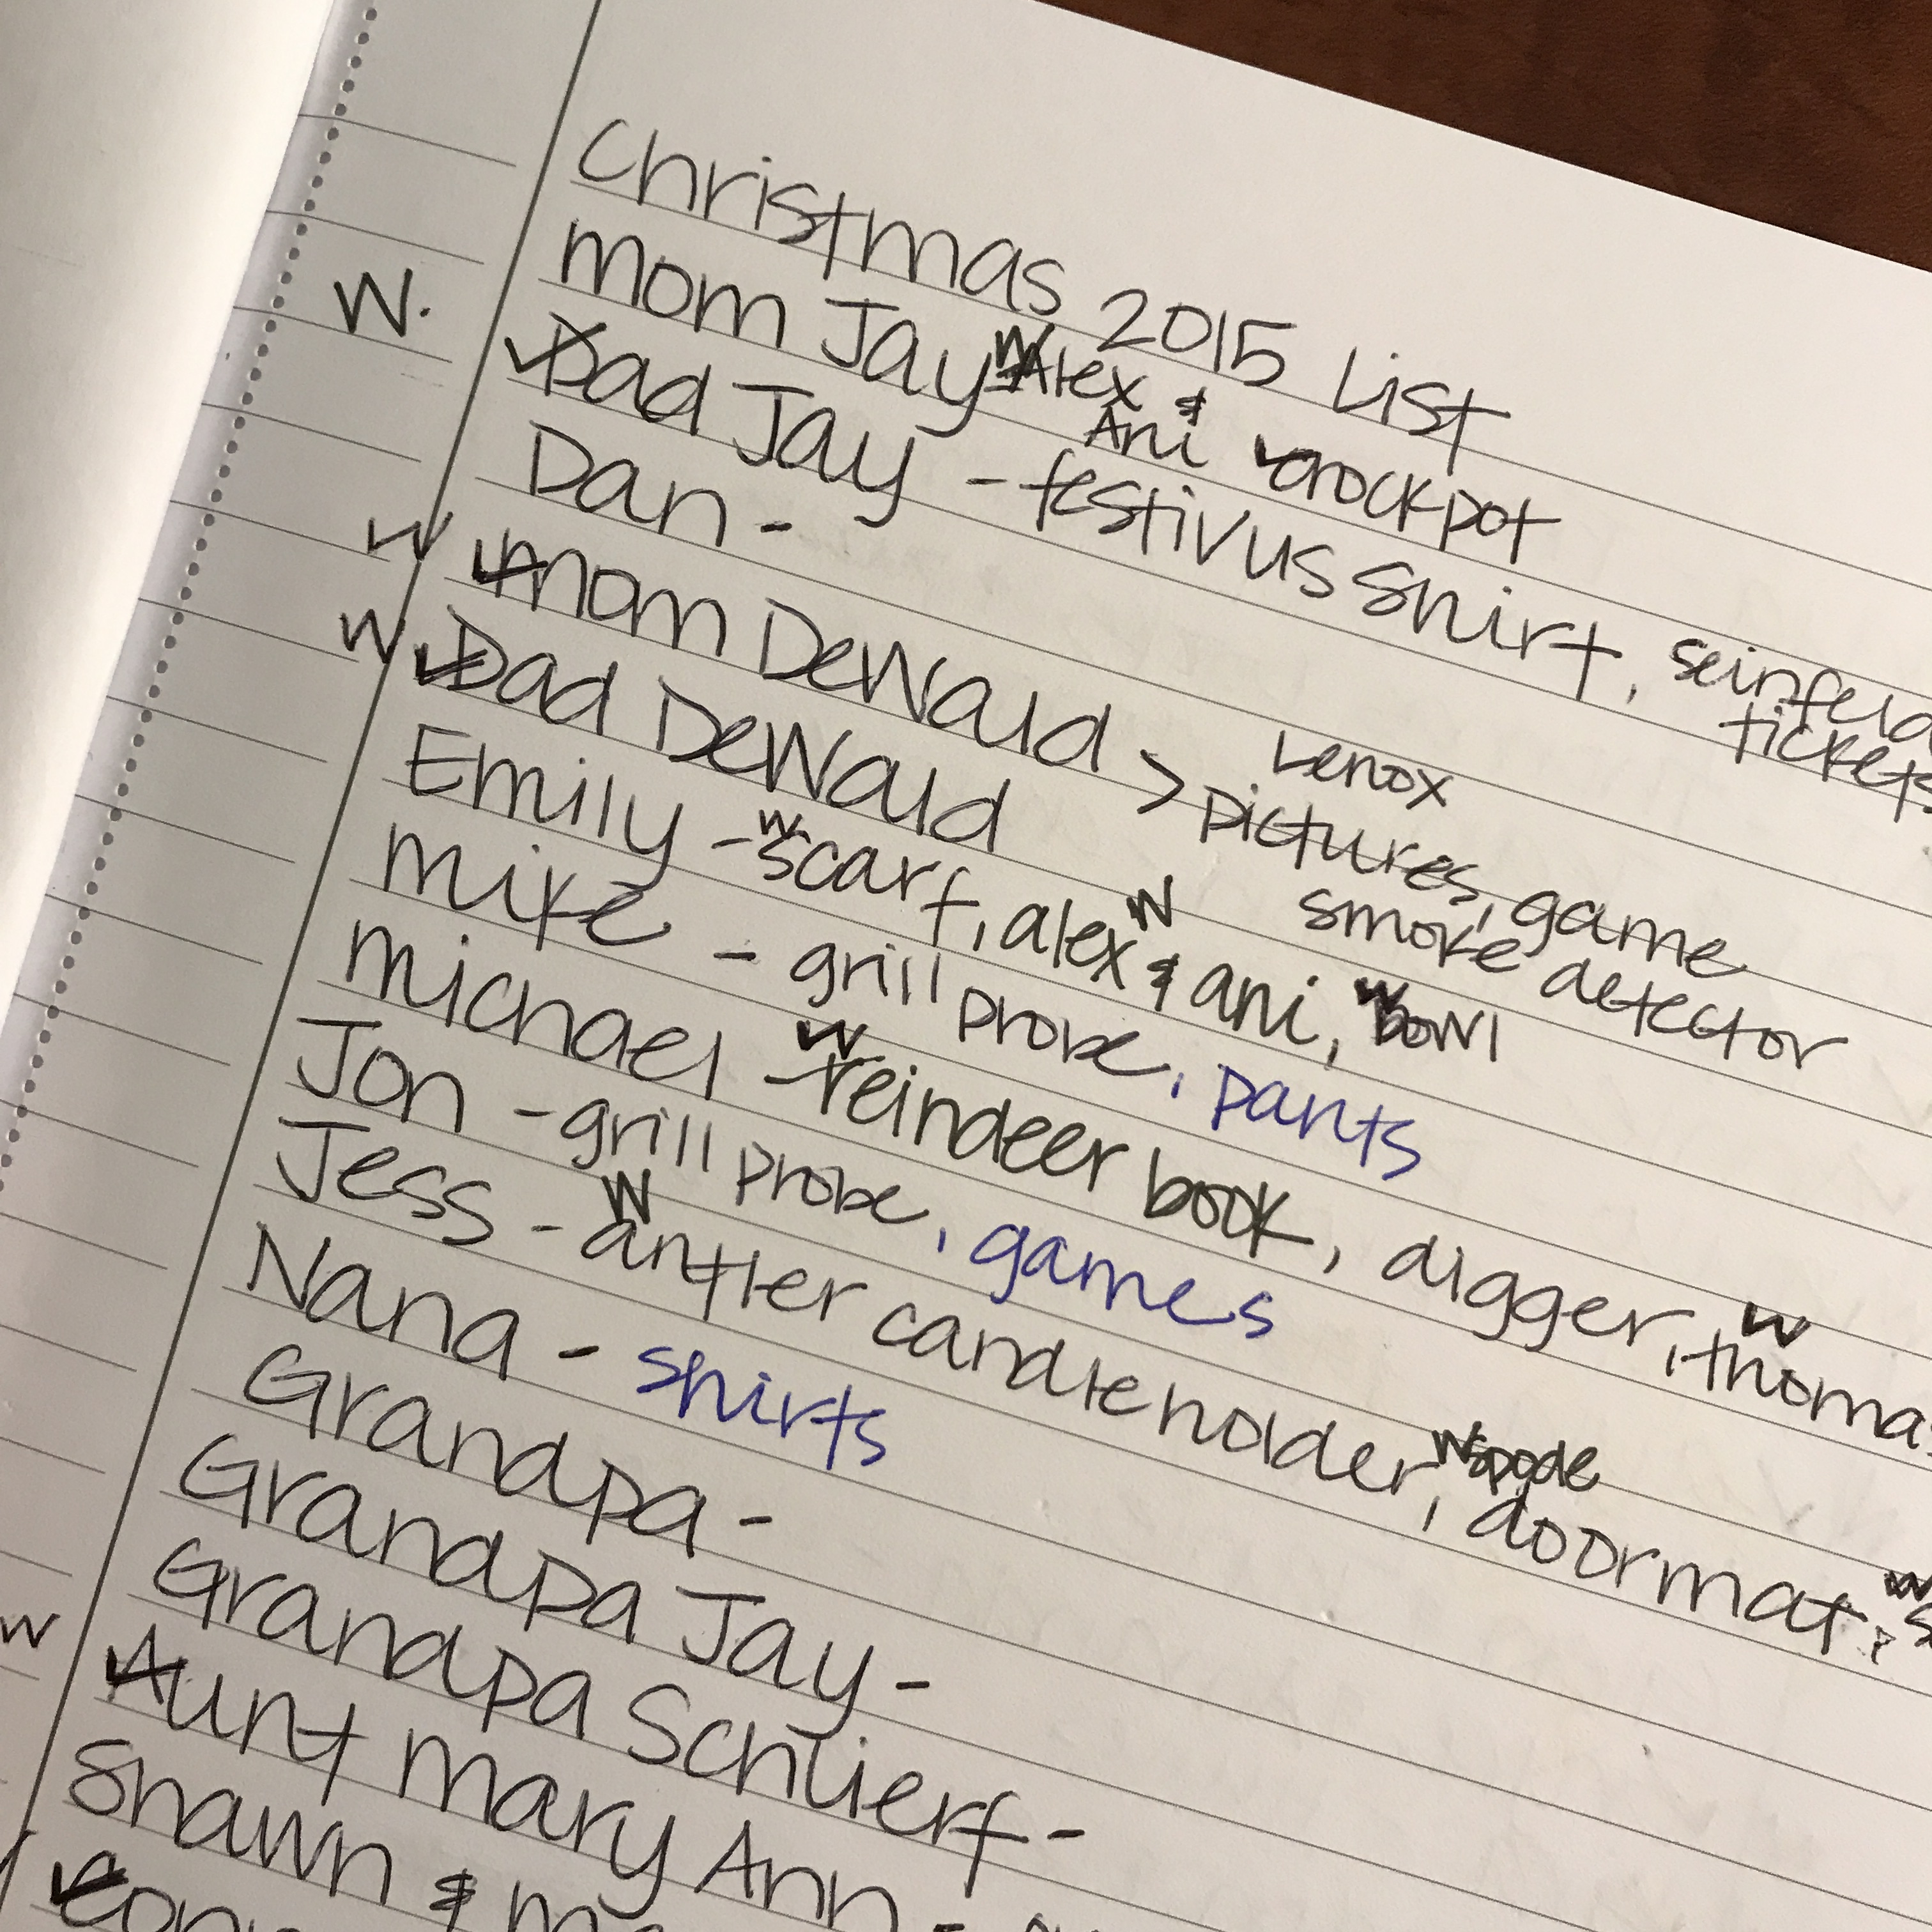 Christmas 2015 List
Mom Jay - W Alex &
Ani ✓crockpot
W. ✓Dad Jay - festivus shirt, seinfeld
tickets
Dan -
W ✓Mom DeWald > Lenox
pictures, game
W ✓Dad DeWald smoke detector
Emily - W scarf, alex & ani, W W bowl
Mike - grill probe, pants
Michael - W reindeer book, digger, W thomas
Jon - grill probe, games
Jess - W antler candle holder, W spode
doormat, W
Nana - shirts
Grandpa -
Grandpa Jay -
Grandpa Schlierf -
W ✓Aunt Mary Ann -
Shawn &